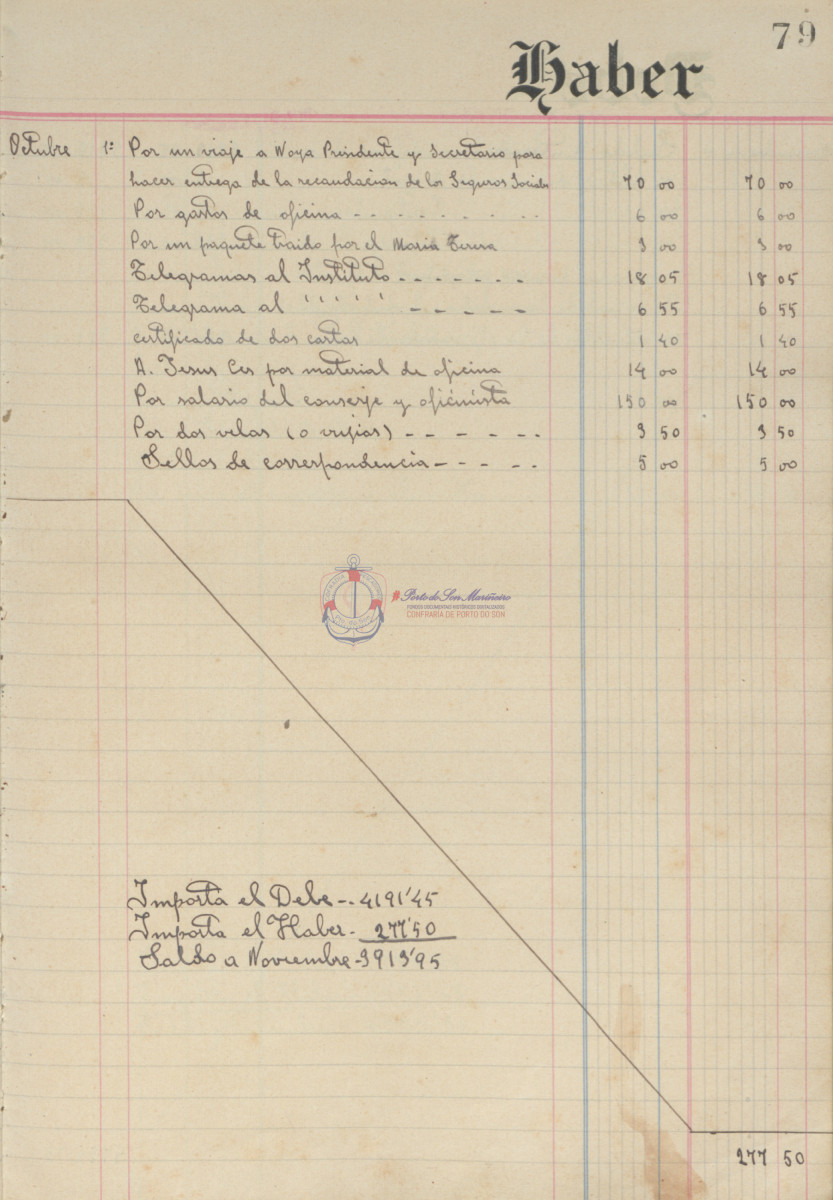 79
Haber
Octubre 1º Por un viaje a Noya Presidente y Secretario para
hacer entrega de la recaudacion de los Seguros Sociales 70 00 70 00
Por gastos de oficina - - - - - - - - - 6 00 6 00
Por un paquete traido por el Maria Teresa 3 00 3 00
Telegramas al Instituto - - - - - - - 18 05 18 05
Telegrama al ' ' ' ' ' - - - - - 6 55 6 55
certificado de dos cartas 1 40 1 40
A. Jesus Ces por material de oficina 14 00 14 00
Por salario del conserje y oficinista 150 00 150 00
Por dos velas (o vujias) - - - - - - 3 50 3 50
Sellos de correspondencia - - - - - 5 00 5 00
Porto do Son Mariñeiro
FONDOS DOCUMENTAIS HISTÓRICOS DIXITALIZADOS
CONFRARÍA DE PORTO DO SON
Importa el Debe -- 4191'45
Importa el Haber - 277'50
Saldo a Noviembre - 3913'95
277 50